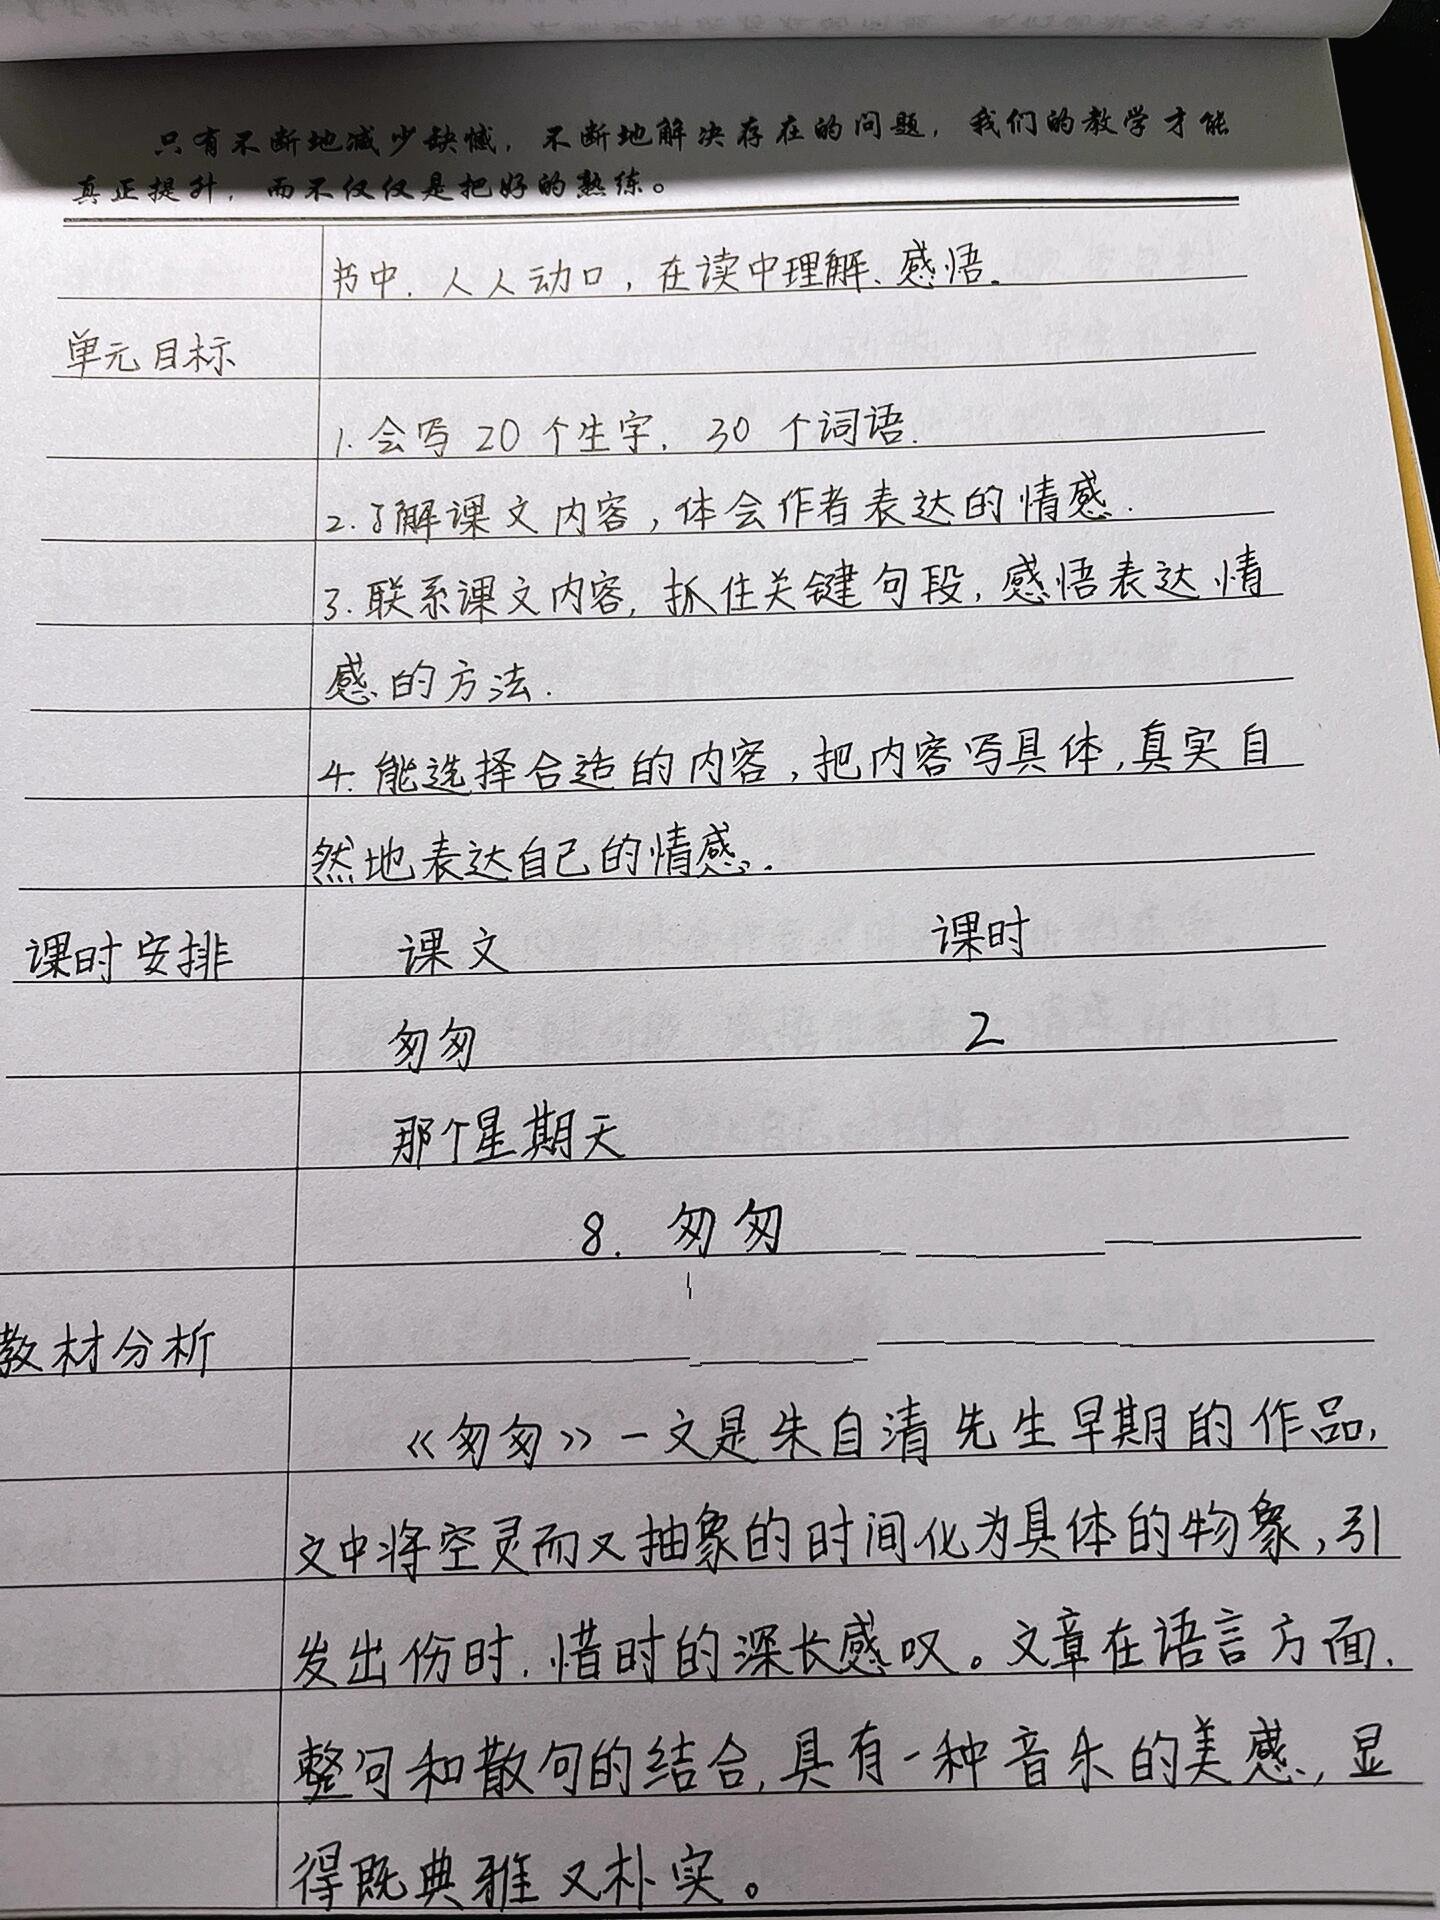 只有不断地减少缺憾，不断地解决存在的问题，我们的教学才能
真正提升，而不仅仅是把好的熟练。
书中.人人动口，在读中理解、感悟.
单元目标
1.会写20个生字，30个词语.
2.了解课文内容，体会作者表达的情感.
3.联系课文内容，抓住关键句段，感悟表达情
感的方法.
4.能选择合适的内容，把内容写具体，真实自
然地表达自己的情感.
课时安排 课文 课时
匆匆 2
那个星期天
8. 匆匆
教材分析
《匆匆》一文是朱自清先生早期的作品，
文中将空灵而又抽象的时间化为具体的物象，引
发出伤时.惜时的深长感叹。文章在语言方面，
整句和散句的结合，具有一种音乐的美感，显
得既典雅又朴实。